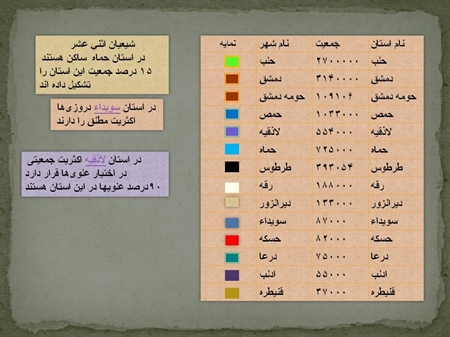 نام استان جمعیت نام شهر نمایه
حلب ۲۷۰۰۰۰۰ حلب
دمشق ۳۱۴۰۰۰۰ دمشق
حومه دمشق ۱۰۹۱۰۴ حومه دمشق
حمص ۱۰۳۳۰۰۰ حمص
لاذقیه ۵۵۴۰۰۰ لاذقیه
حماه ۷۲۵۰۰۰ حماه
طرطوس ۳۹۳۰۵۴ طرطوس
رقه ۱۸۸۰۰۰ رقه
دیرالزور ۱۳۳۰۰۰ دیرالزور
سویداء ۸۷۰۰۰ سویداء
حسکه ۸۲۰۰۰ حسکه
درعا ۷۵۰۰۰ درعا
ادلب ۵۵۰۰۰ ادلب
قنیطره ۳۷۰۰۰ قنیطره
شیعیان اثنی عشر
در استان حماه ساکن هستند
۱۵ درصد جمعیت این استان را
تشکیل داده اند
در استان سویداء دروزی‌ها
اکثریت مطلق را دارند
در استان لاذقیه اکثریت جمعیتی
در اختیار علوی‌ها قرار دارد
۹۰درصد علویها در این استان هستند